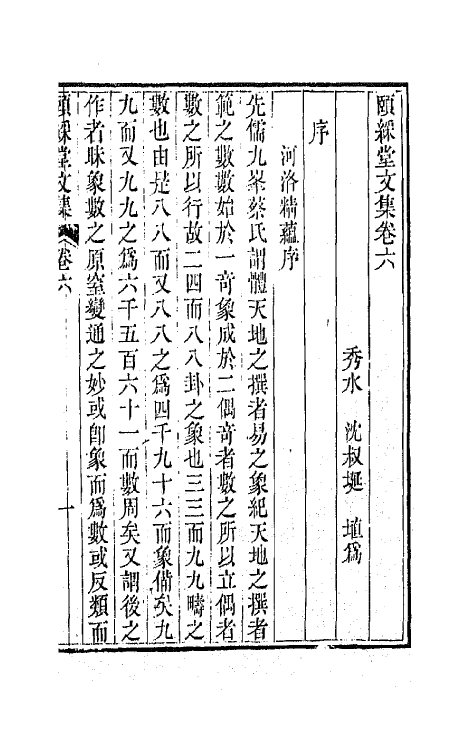 頤綵堂文集卷六
秀水 沈叔埏 埴爲
序
河洛精蘊序
先儒九峯蔡氏謂體天地之撰者易之象紀天地之撰者
範之數數始於一竒象成於二偶竒者數之所以立偶者
數之所以行故二四而八八卦之象也三三而九九疇之
數也由是八八而又八八之爲四千九十六而象備矣九
九而又九九之爲六千五百六十一而數周矣又謂後之
作者昧象數之原窒變通之妙或卽象而爲數或反類而
頤綵堂文集 卷六 一